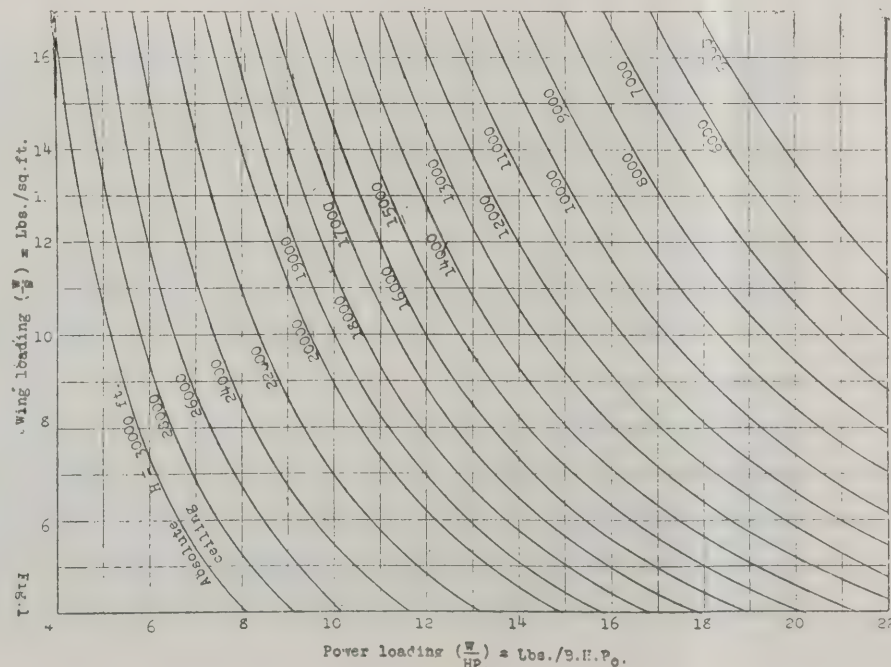 16
14
12
10
8
6
4
Wing loading (W/S) = Lbs./sq.ft.
Fig.1
4 6 8 10 12 14 16 18 20 22
Power loading (W/HP) = Lbs./B.H.P₀.
Absolute ceiling
H = 30000 ft.
28000
26000
24000
22000
20000
19000
18000
17000
16000
15000
14000
13000
12000
11000
10000
9000
8000
7000
6000